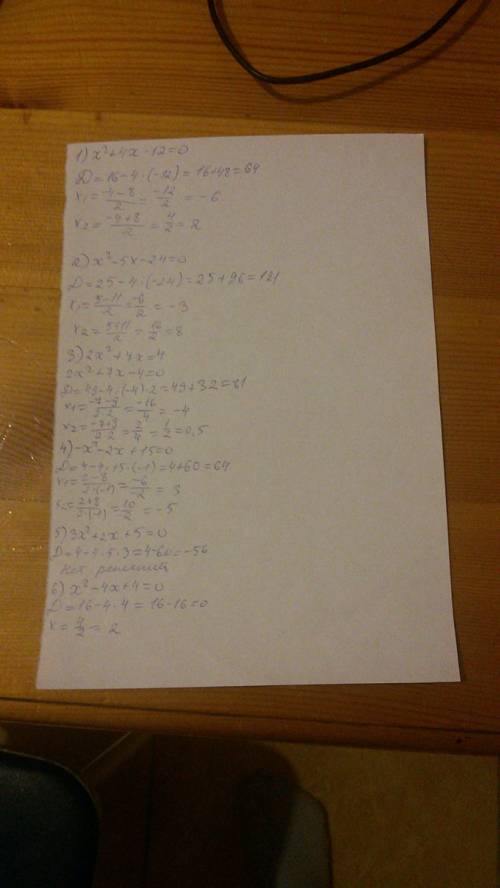 1) x²+4x-12=0
D=16-4·(-12)=16+48=64
x₁=(-4-8)/2=-12/2=-6
x₂=(-4+8)/2=4/2=2
2) x²-5x-24=0
D=25-4·(-24)=25+96=121
x₁=(5-11)/2=-6/2=-3
x₂=(5+11)/2=16/2=8
3) 2x²+7x=4
2x²+7x-4=0
D=49-4·(-4)·2=49+32=81
x₁=(-7-9)/(2·2)=-16/4=-4
x₂=(-7+9)/(2·2)=2/4=1/2=0,5
4) -x²-2x+15=0
D=4-4·15·(-1)=4+60=64
x₁=(2-8)/(2·(-1))=-6/-2=3
x₂=(2+8)/(2·(-1))=10/2=-5
5) 3x²+2x+5=0
D=4-4·5·3=4-60=-56
Нет решений
6) x²-4x+4=0
D=16-4·4=16-16=0
x=4/2=2